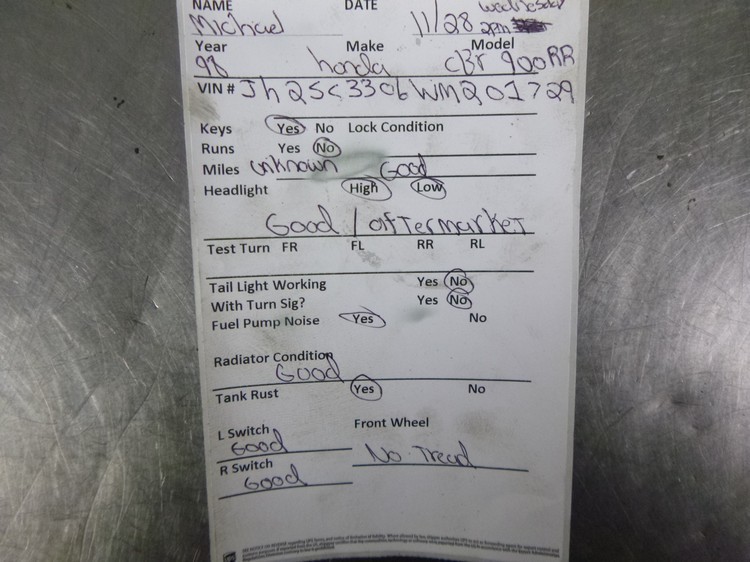 NAME DATE Wednesday
Michael 11/28 2pm
Year Make Model
98 honda cbr 900RR
VIN # Jh2SC3306WM201729
Keys Yes No Lock Condition
Runs Yes No
Miles unknown Good
Headlight High Low
Good / aftermarket
Test Turn FR FL RR RL
Tail Light Working Yes No
With Turn Sig? Yes No
Fuel Pump Noise Yes No
Radiator Condition
Good
Tank Rust Yes No
L Switch Front Wheel
Good
No Tread
R Switch
Good